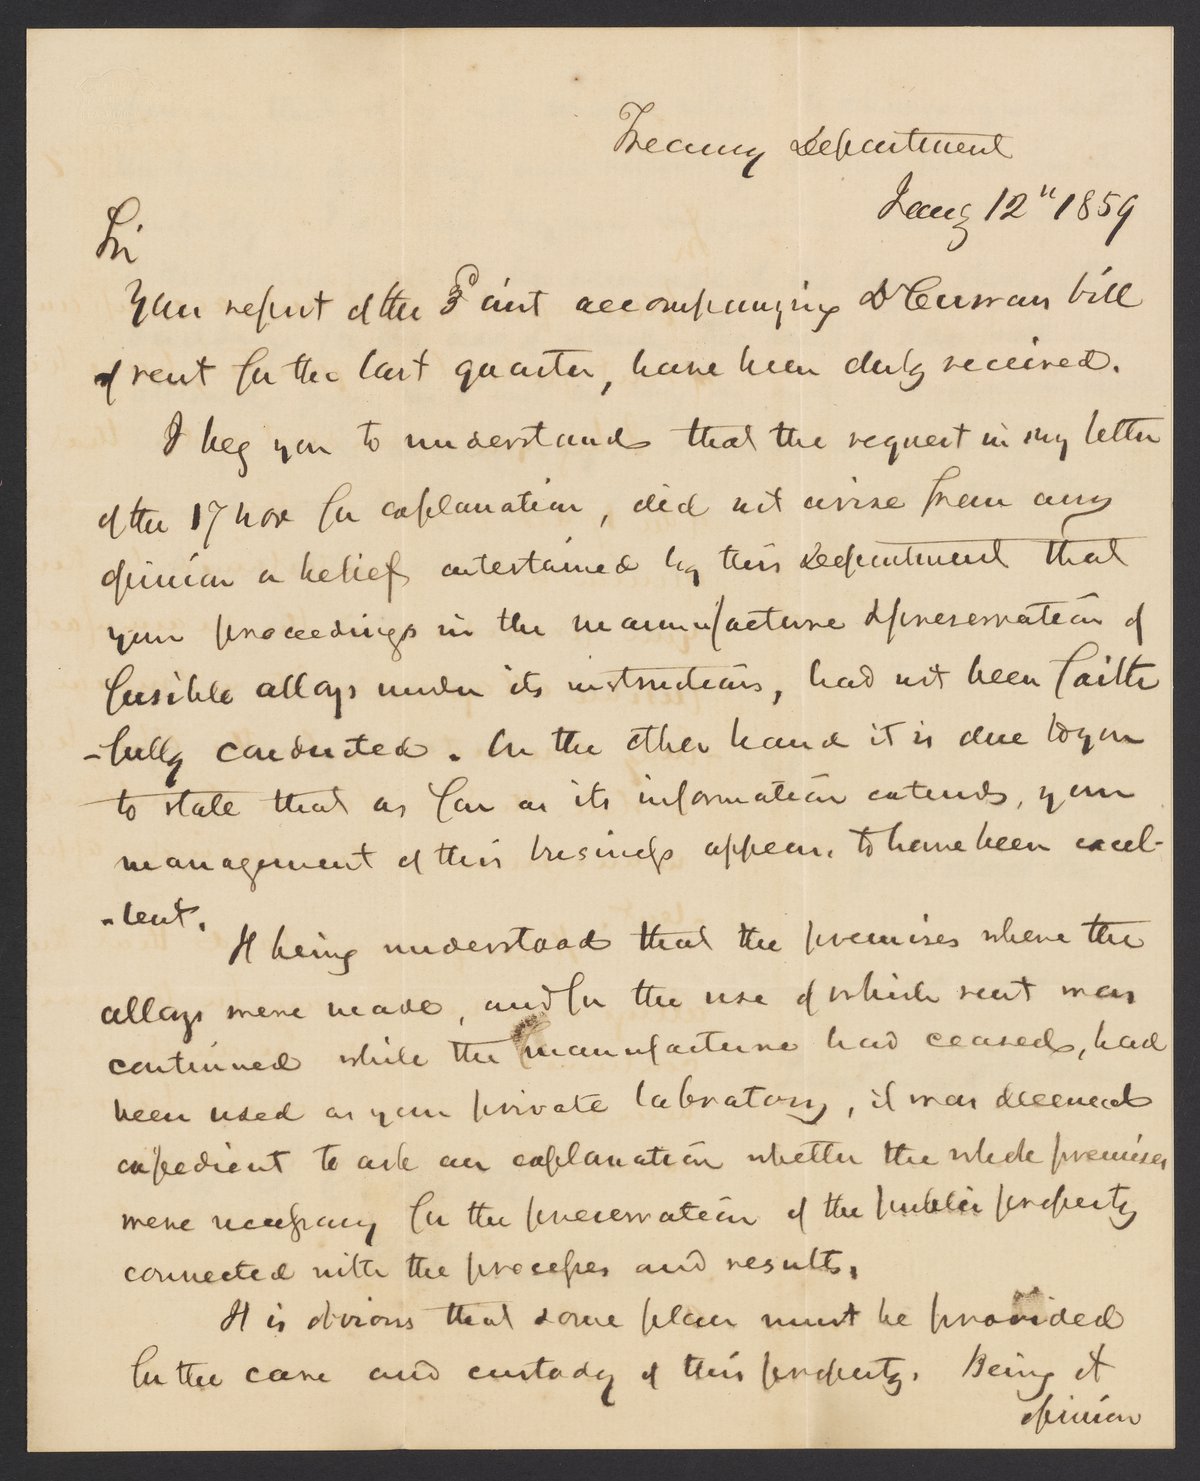 Treasury Department
Jany 12" 1859
Sir
Your report of the 3d inst accompanying Dr Curran bill
of rent for the last quarter, have been duly received.
I beg you to understand that the request in my letter
of the 17 Nov for explanation, did not arise from any
opinion or belief entertained by this Department that
your proceedings in the manufacture & preservation of
fusible alloys under its instructions, had not been faith
-fully conducted. On the other hand it is due to you
to state that as far as its information extends, your
management of this business appears to have been excel-
-lent.
It being understood that the premises where the
alloys were made, and for the use of which rent was
continued while the manufacture had ceased, had
been used as your private labratory, it was deemed
expedient to ask an explanation whether the whole premises
were necessary for the preservation of the public property
connected with the processes and results.
It is obvious that some place must be provided
for the care and custody of this property. Being of
opinion